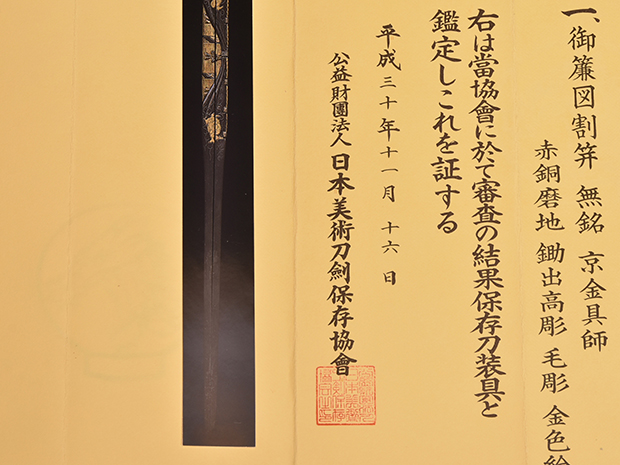 一、御簾図割笄 無銘 京金具師
赤銅磨地 鋤出高彫 毛彫 金色絵
右は當協會に於て審査の結果保存刀装具と
鑑定しこれを証する
平成三十年十一月 十六日
公益財團法人 日本美術刀劍保存協會